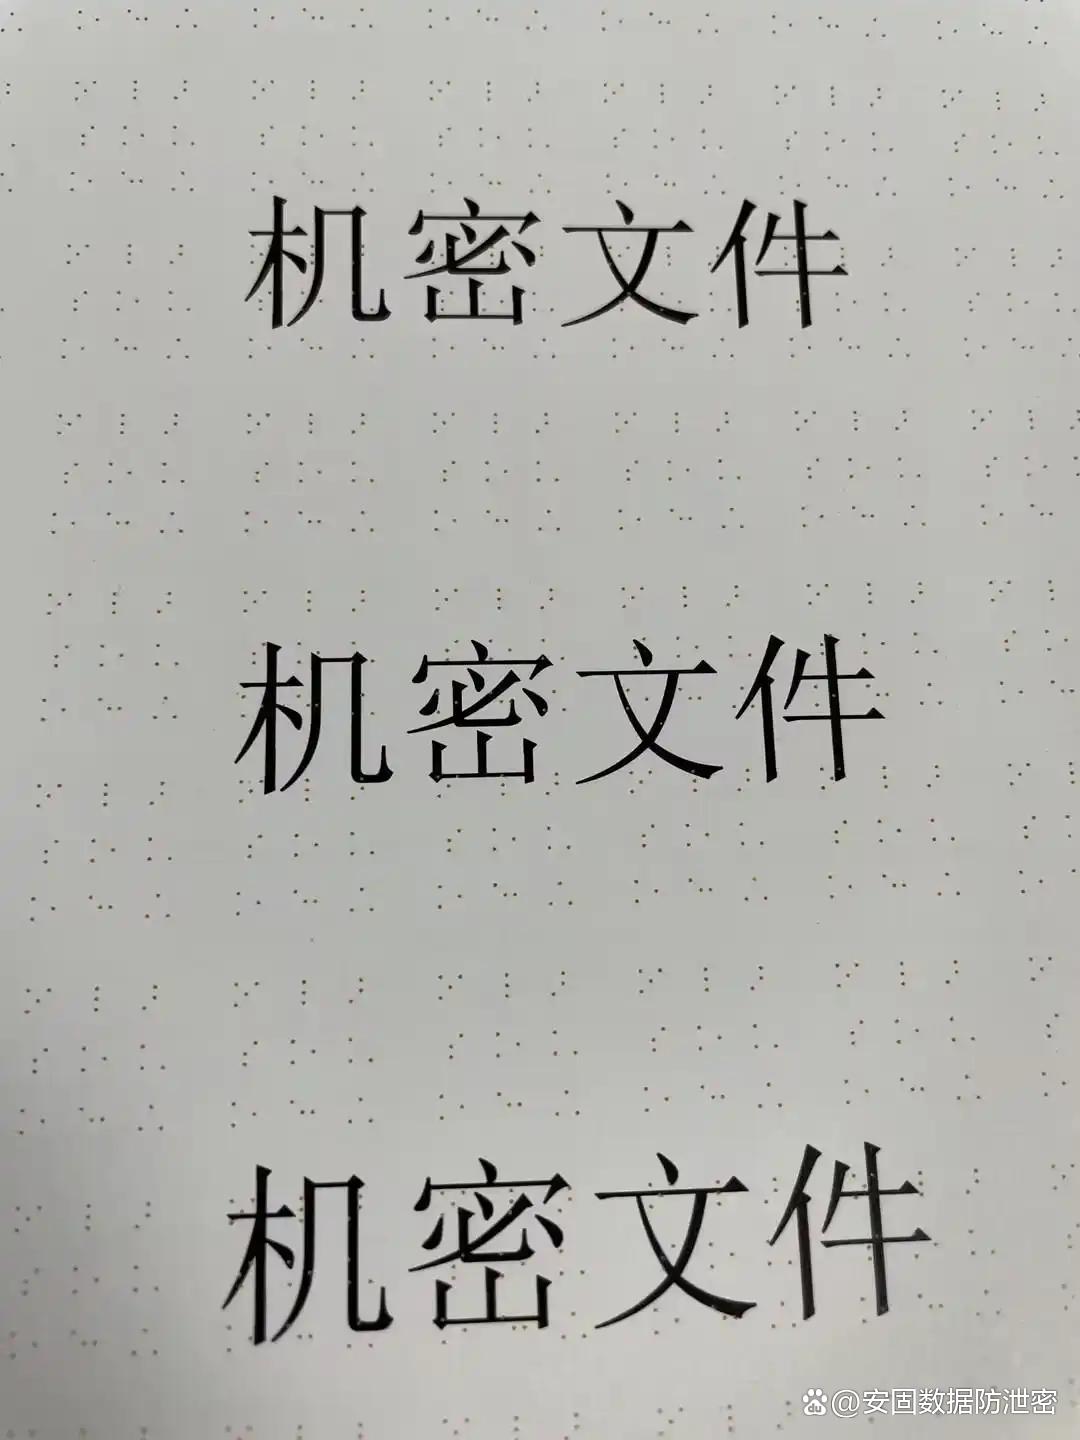 机密文件
机密文件
机密文件
@安固数据防泄密